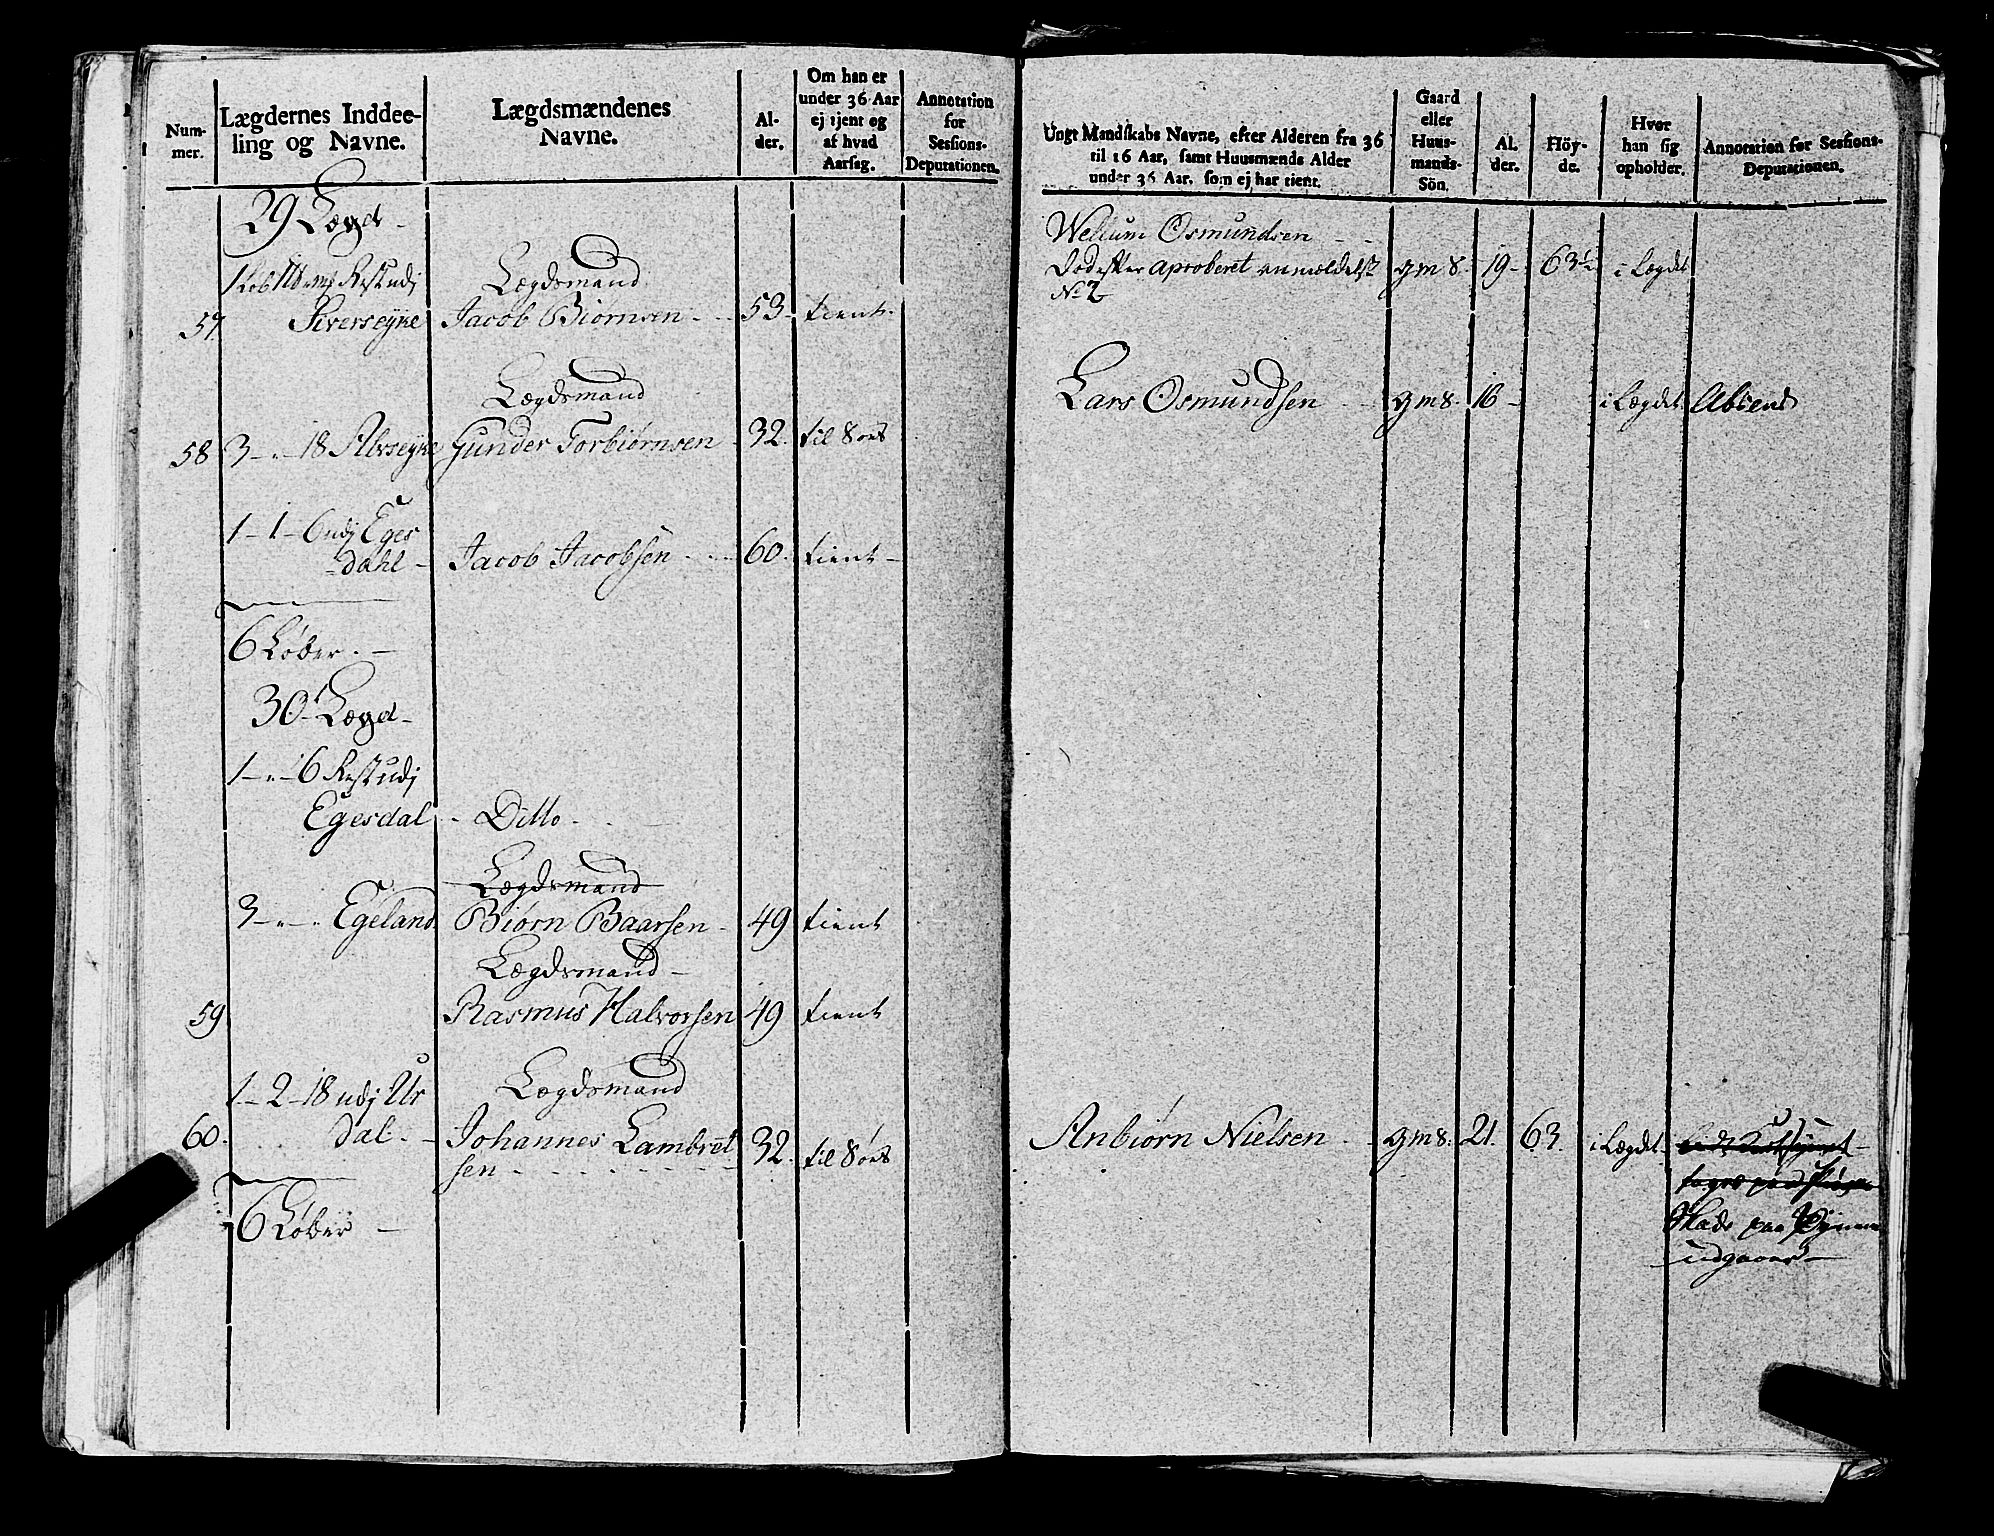 Num-
mer.
Lægdernes Inddee-
ling og Navne.
Lægdsmændenes
Navne.
Al-
der.
Om han er
under 36 Aar
ej tjent og
af hvad
Aarsag.
Annotation
for
Sessions-
Deputationen.
29 Lægd
Rest udj
Lægdsmand
57 Siverseyne Jacob Biørnsen 53 tient
Lægdsmand
58 3 18 Gunder Torbiørnsen 32 til Søes
1-1-6 udj Eges
dahl Jacob Jacobsen 60 tient
6 Løber
30 Lægd
1 - 6 Rest udj
Egesdal Ditto
Lægdsmand
3 Egeland Biørn Baarsen 49 tient
Lægdsmand
59 Rasmus Halvorsen 49 tient
1-2-18 udj Ur Lægdsmand
60. dal Johannes Lambret 32 til Søes
sen
6 Løber
Ungt Mandskabs Navne, efter Alderen fra 36
til 16 Aar, samt Huusmænds Alder
under 36 Aar, som ej har tient.
Gaard
eller
Huus-
mands-
Sön.
Al-
der.
Höy-
de.
Hvor
han sig
opholder.
Annotation for Sessions-
Deputationen.
Wellum Osmundsen
Død efter aproberet anmeldelse gms. 19 63½ i Lægdet
No 2
Lars Osmundsen gms. 16 i Lægdet Absent
Anbiørn Nielsen gms. 21 63 i Lægdet
Skade paa
udgaaer